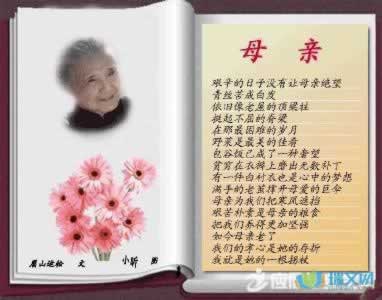 母亲
艰辛的日子没有让母亲绝望
青丝苦成白发
依旧像老屋的顶梁柱
挺起不屈的脊梁
在那最困难的岁月
野菜是最美的佳肴
包谷饭已成了一种奢望
贫穷在衣裤上磨出无数补丁
有一件白衬衣也是心中的梦想
满手的老茧撑开母爱的巨伞
母亲为我们把寒风遮挡
艰苦朴素是母亲的粮食
把我们养得更加坚强
如今母亲老了
我们的孝心是她的存折
我就是她的一根拐杖
眉山迎松 文 小昕 图